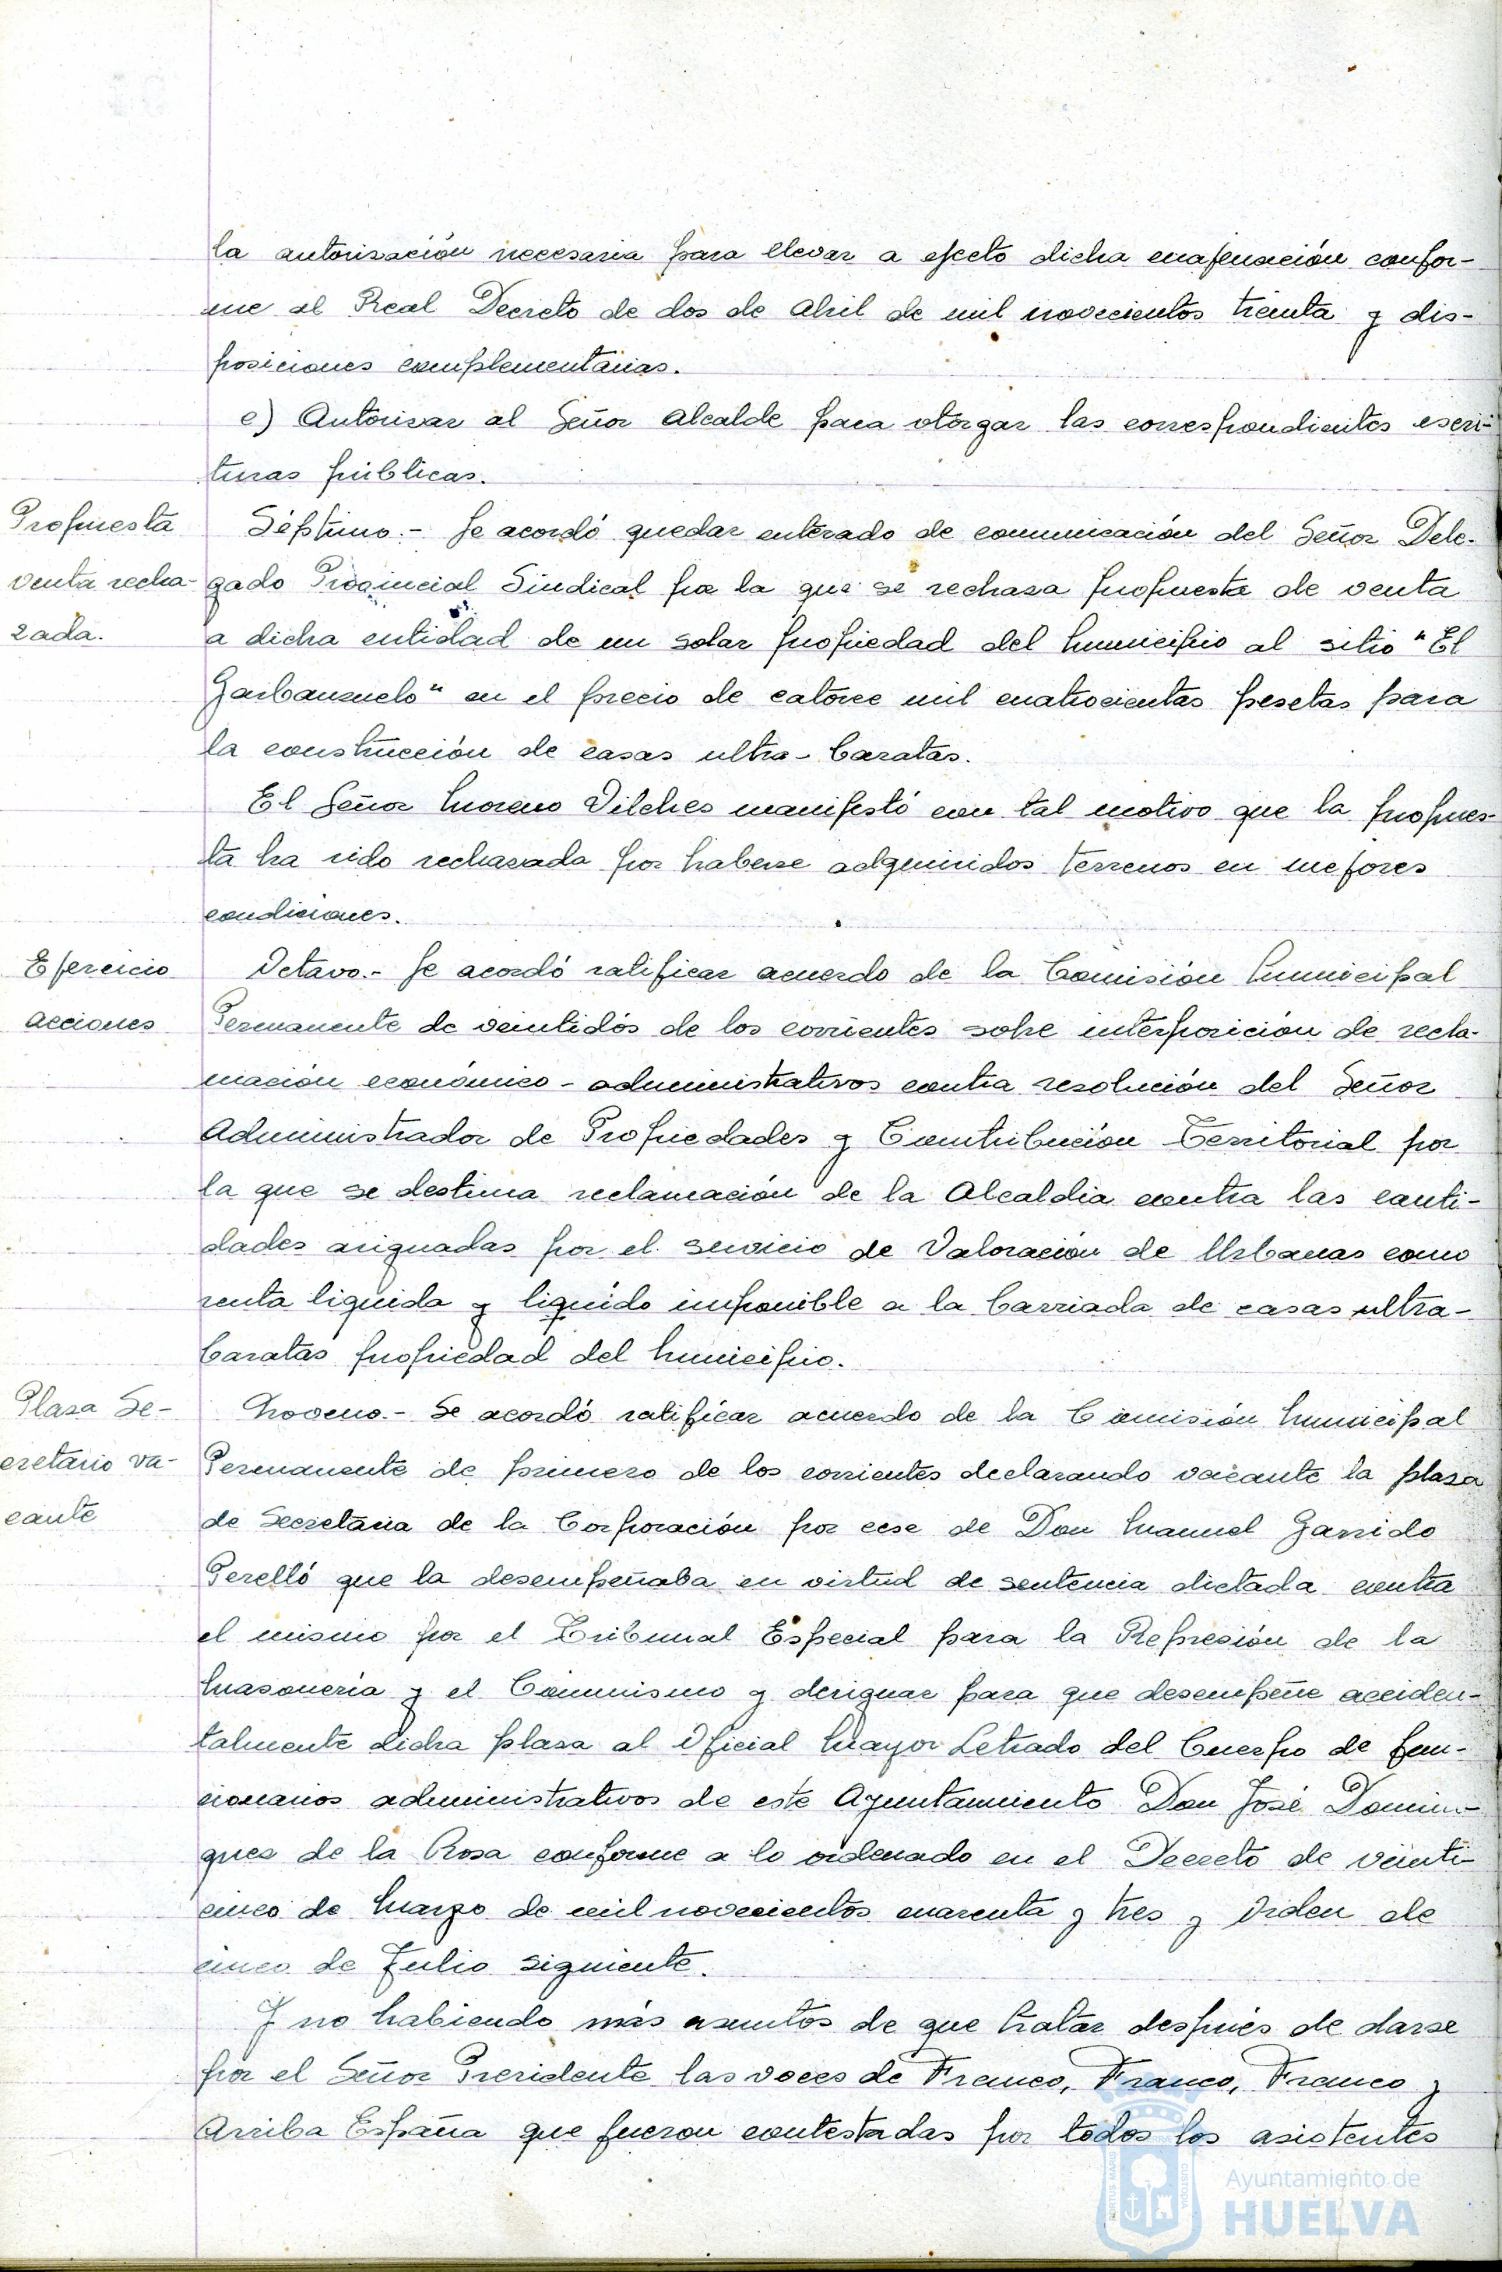 la autorización necesaria para llevar a efecto dicha enajenación confor-
me al Real Decreto de dos de Abril de mil novecientos treinta y dis-
posiciones complementarias.
e) Autorizar al Señor Alcalde para otorgar las correspondientes escri-
turas públicas.
Propuesta
venta recha-
zada.
Séptimo.- Se acordó quedar enterado de comunicación del Señor Dele-
gado Provincial Sindical por la que se rechaza propuesta de venta
a dicha entidad de un solar propiedad del Municipio al sitio "El
Garbanzuelo" en el precio de catorce mil cuatrocientas pesetas para
la construcción de casas ultra-baratas.
El Señor Moreno Vilches manifestó con tal motivo que la propues-
ta ha sido rechazada por haberse adquiridos terrenos en mejores
condiciones.
Ejercicio
acciones
Octavo.- Se acordó ratificar acuerdo de la Comisión Municipal
Permanente de veintidós de los corrientes sobre interposición de recla-
mación económico-administrativos contra resolución del Señor
Administrador de Propiedades y Contribución Territorial por
la que se destima reclamación de la Alcaldia contra las canti-
dades asignadas por el servicio de Valoración de Urbanas como
renta liquida y liquido imponible a la barriada de casas ultra-
baratas propiedad del Municipio.
Plaza Se-
cretario va-
cante
Noveno.- Se acordó ratificar acuerdo de la Comisión Municipal
Permanente de primero de los corrientes declarando vacante la plaza
de Secretaria de la Corporación por cese de Don Manuel Garrido
Perelló que la desempeñaba en virtud de sentencia dictada contra
el mismo por el Tribunal Especial para la Represión de la
Masonería y el Comunismo y designar para que desempeñe acciden-
talmente dicha plaza al Oficial Mayor Letrado del Cuerpo de fun-
cionarios administrativos de este Ayuntamiento Don José Domin-
guez de la Rosa conforme a lo ordenado en el Decreto de veinti-
cinco de Marzo de mil novecientos cuarenta y tres y Orden de
cinco de Julio siguiente.
Y no habiendo más asuntos de que tratar después de darse
por el Señor Presidente las voces de Franco, Franco, Franco y
Arriba España que fueron contestadas por todos los asistentes
PORTUS MARIS CUSTODIA
Ayuntamiento de
HUELVA